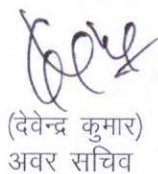 (देवेन्द्र कुमार)
अवर सचिव